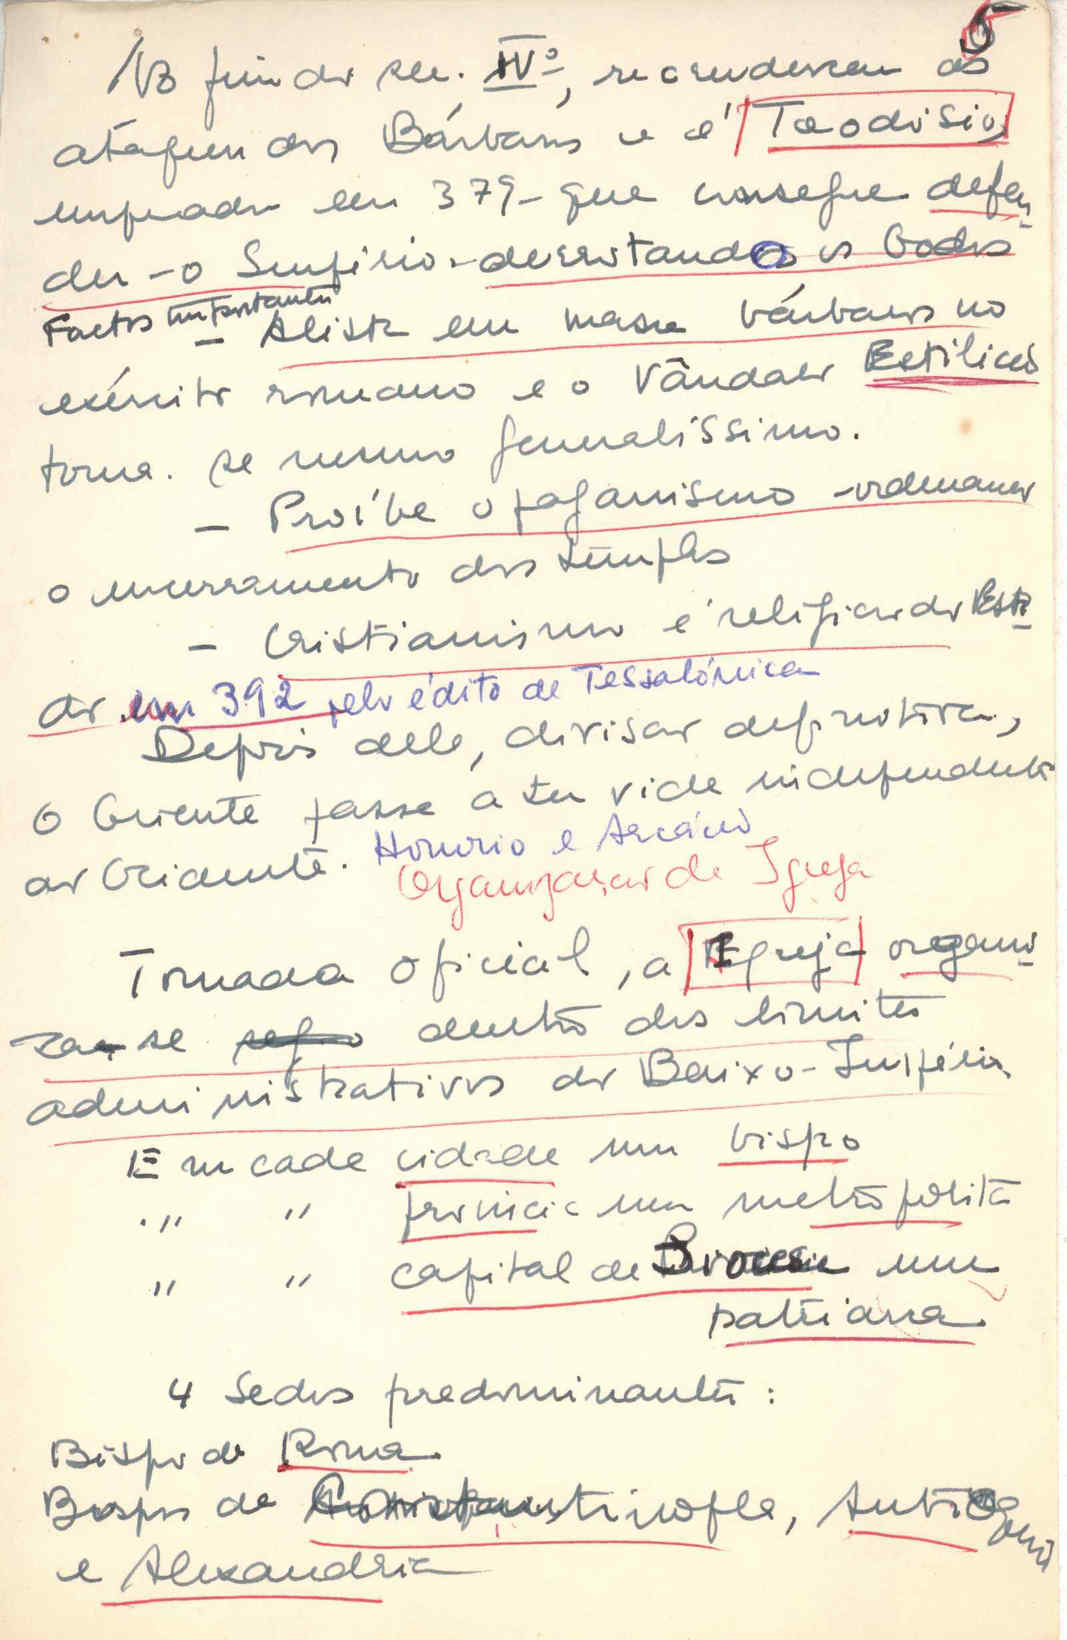 5
No fim do sec. IVº, recrudescem os
ataques dos Bárbaros e é Teodósio,
imperador em 379 - que consegue defen-
der - o Império - derrotando os Godos
Factos importantes
- Alista em massa bárbaros no
exército romano e o Vândalo Estilicão
torna-se mesmo generalíssimo.
- Proíbe o paganismo - ordenando
o encerramento dos templos
- Cristianismo é religião do Esta-
do em 392 pelo édito de Tessalónica
Depois dele, divisão definitiva,
O Oriente passa a ter vida independente
do Ocidente. Honório e Arcádio
Organização da Igreja
Tornada oficial, a Igreja organi-
za-se dentro dos limites
administrativos do Baixo-Império.
Em cada cidade um bispo
" " província um metropolita
" " capital de Diocese um
patriarca.
4 Sedes predominantes:
Bispo de Roma
Bispos de Constantinopla, Antioquia
e Alexandria